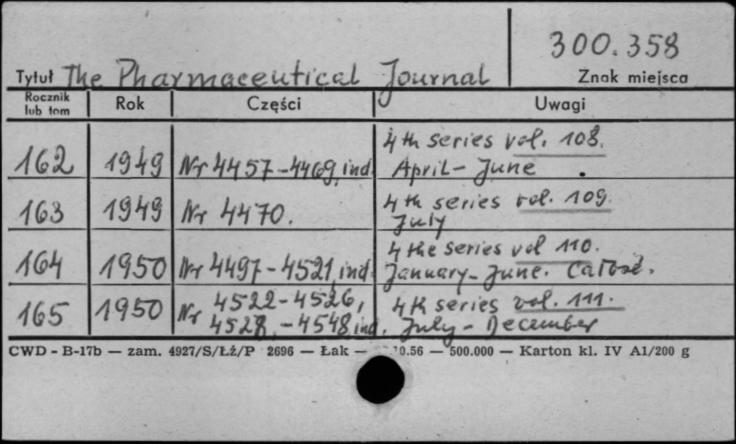 300.358
Tytuł The Pharmaceutical Journal Znak miejsca
Rocznik lub tom Rok Części Uwagi
162 1949 Nr 4457-4469, ind. 4th series vol. 108.
April - June
163 1949 Nr 4470. 4th series vol. 109.
July
164 1950 Nr 4497-4521, ind. 4the series vol 110.
January-June.
165 1950 Nr 4522-4526, 4th series vol. 111.
4528, -4548, ind. July - December
CWD - B-17b — zam. 4927/S/Łż/P 2696 — Łak — 10.56 — 500.000 — Karton kl. IV A1/200 g